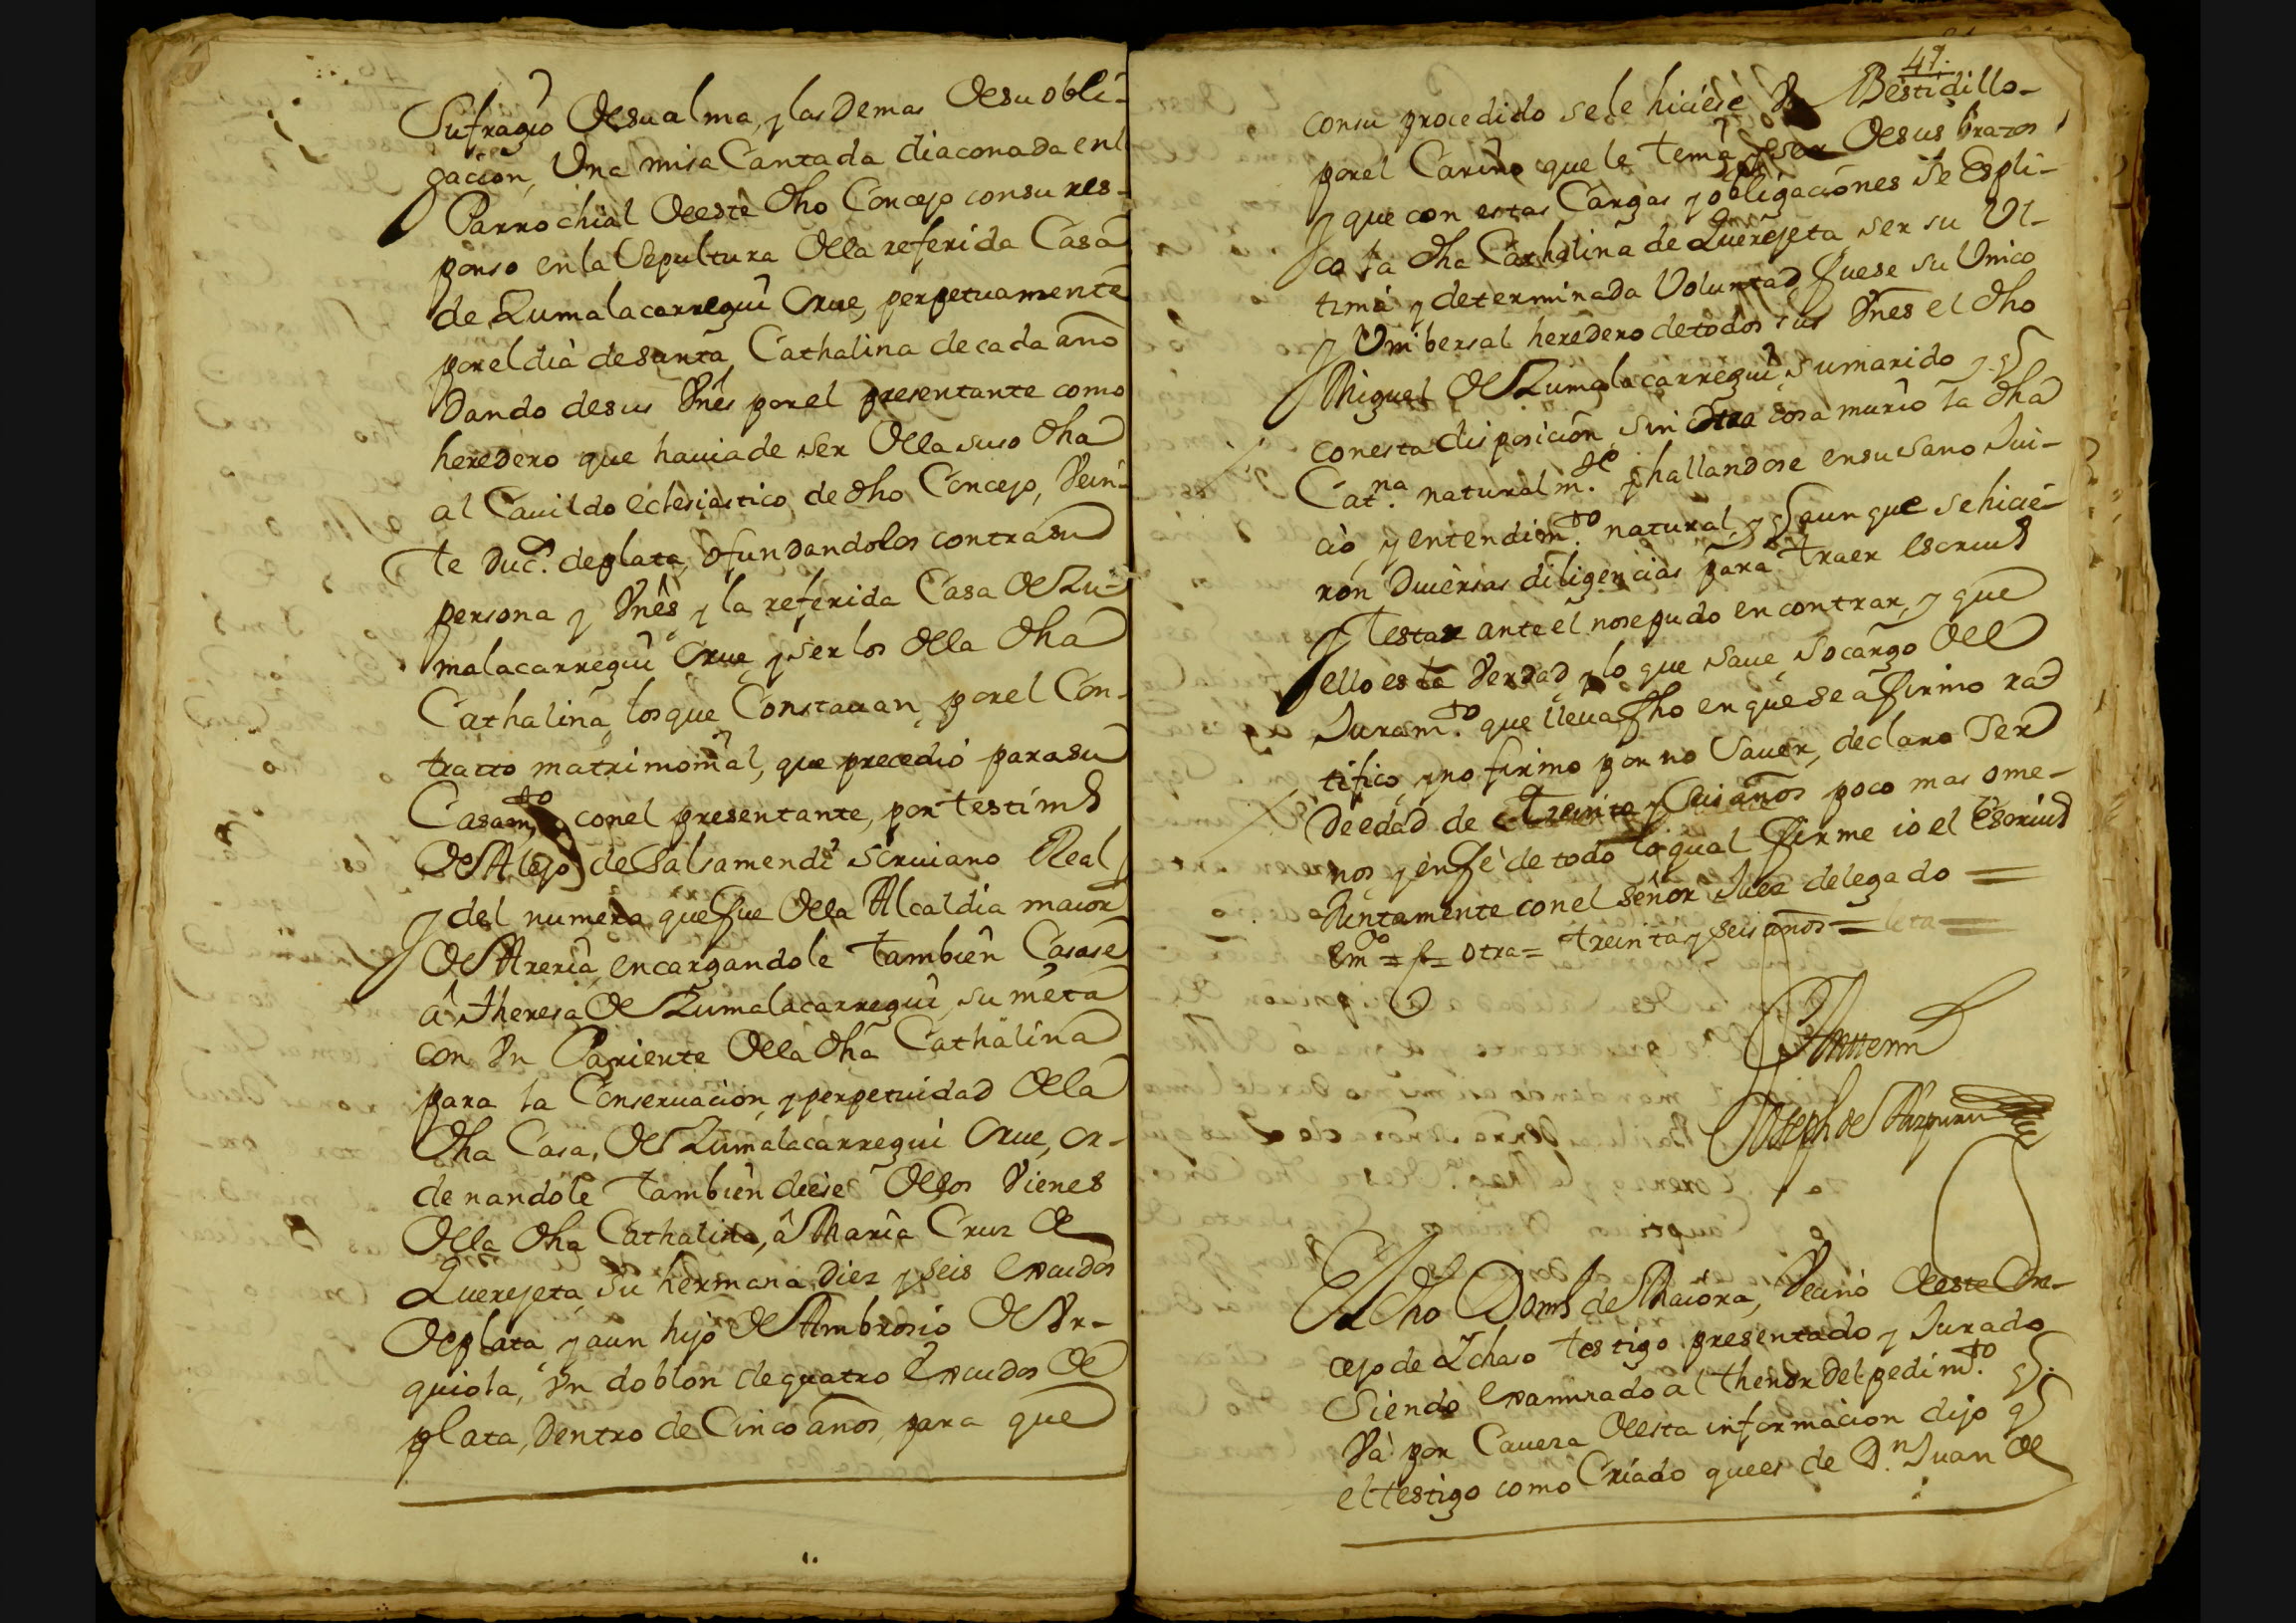 Sufragio de su alma, y las demas de su obli-
gacion, Una misa Cantada diaconada en l
Parrochial de este dho Concejo con su res-
ponso en la Sepultura de la referida Casa
de Zumalacarregui Orue, perpetuamente
por el dia de santa Cathalina de cada año
Dando de sus Vnes por el presentante como
heredero que hauia de ser de la suso dha
al Cauildo eclesiastico de dho Concejo, Vein-
te Duc.s de plata, ofundandolos contra su
persona y Vnes y la referida Casa de Zu-
malacarregui Orue, y ser los de la dha
Cathalina, los que Constauan por el Con-
tratto matrimonial, que precedió para su
Casam.to con el presentante, por testim.o
de Alejo de Salsamendi scriuano Real
y del numero que fue de la Alcaldia maior
de Areria, encargandole tambien Casase
â Theresa de Zumalacarregui, su nieta
con Vn Pariente de la dha Cathalina
para la Conseruacion, y perpetuidad de la
dha Casa, de Zumalacarregui Orue, or-
denandole tambien diese de los Vienes
de la dha Cathalina, â Maria Cruz de
Querejeta su hermana Diez y seis escudos
de plata y a un hijo de Ambrosio de Vr-
quiola, Vn doblon de quatro escudos de
plata, Dentro de Cinco años, para que
47.
con su procedido se le hiciese Vn Bestidillo
por el Cariño que le tenia, y ser de sus brazos
y que con estas Cargas y obligaciones se Espli-
co la dha Cathalina de Querejeta ser su Vl-
tima y determinada Voluntad fuese su Vnico
y Vnibersal heredero de todos sus Vnes el dho
Miguel de Zumalacarregui, su marido y q
con esta disposicion, sin otra cosa murio la dha
Cat.na natural m.te y hallandose en su sano Jui-
cio, y entendim.to natural, y q aunque se hicie-
ron Diuersas diligencias para traer escriu.o
y testar ante el no se pudo encontrar, y que
ello es la Verdad y lo que saue so cargo del
Juram.to que lleua fho en que se afirmo ra-
tifico, y no firmo por no Sauer, declaro Ser
de edad de treinta y seis años poco mas o me-
nos, y en fè de todo lo qual firme io el escriu.o
Juntamente con el señor Juez delegado =
Em.do = f= otra = treinta y seis años =
Joseph de
El dho Dom.o de Maiora, Vecino de este Con-
cejo de Ychaso testigo presentado y Jurado
Siendo examinado al thenor del pedim.to q.
Và por Caueza de esta informacion dijo q
el testigo como Criado que es de D.n Juan de